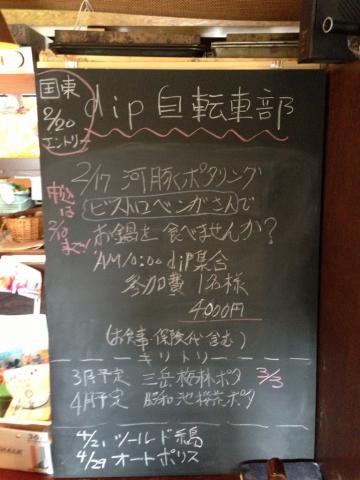 国東
2/20
エントリー
dip 自転車部
2/17 河豚ポタリング
ビストロベンガさんで
お鍋を食べませんか?
申込は
2/10
まで!
AM10:00 dip集合
参加費 1名様
4000円
(お食事・保険代含む)
キリトリ
3月予定 三岳梅林ポタ 3/3
4月予定 昭和池桜花ポタ
4/21 ツールド
4/29 オートポリス